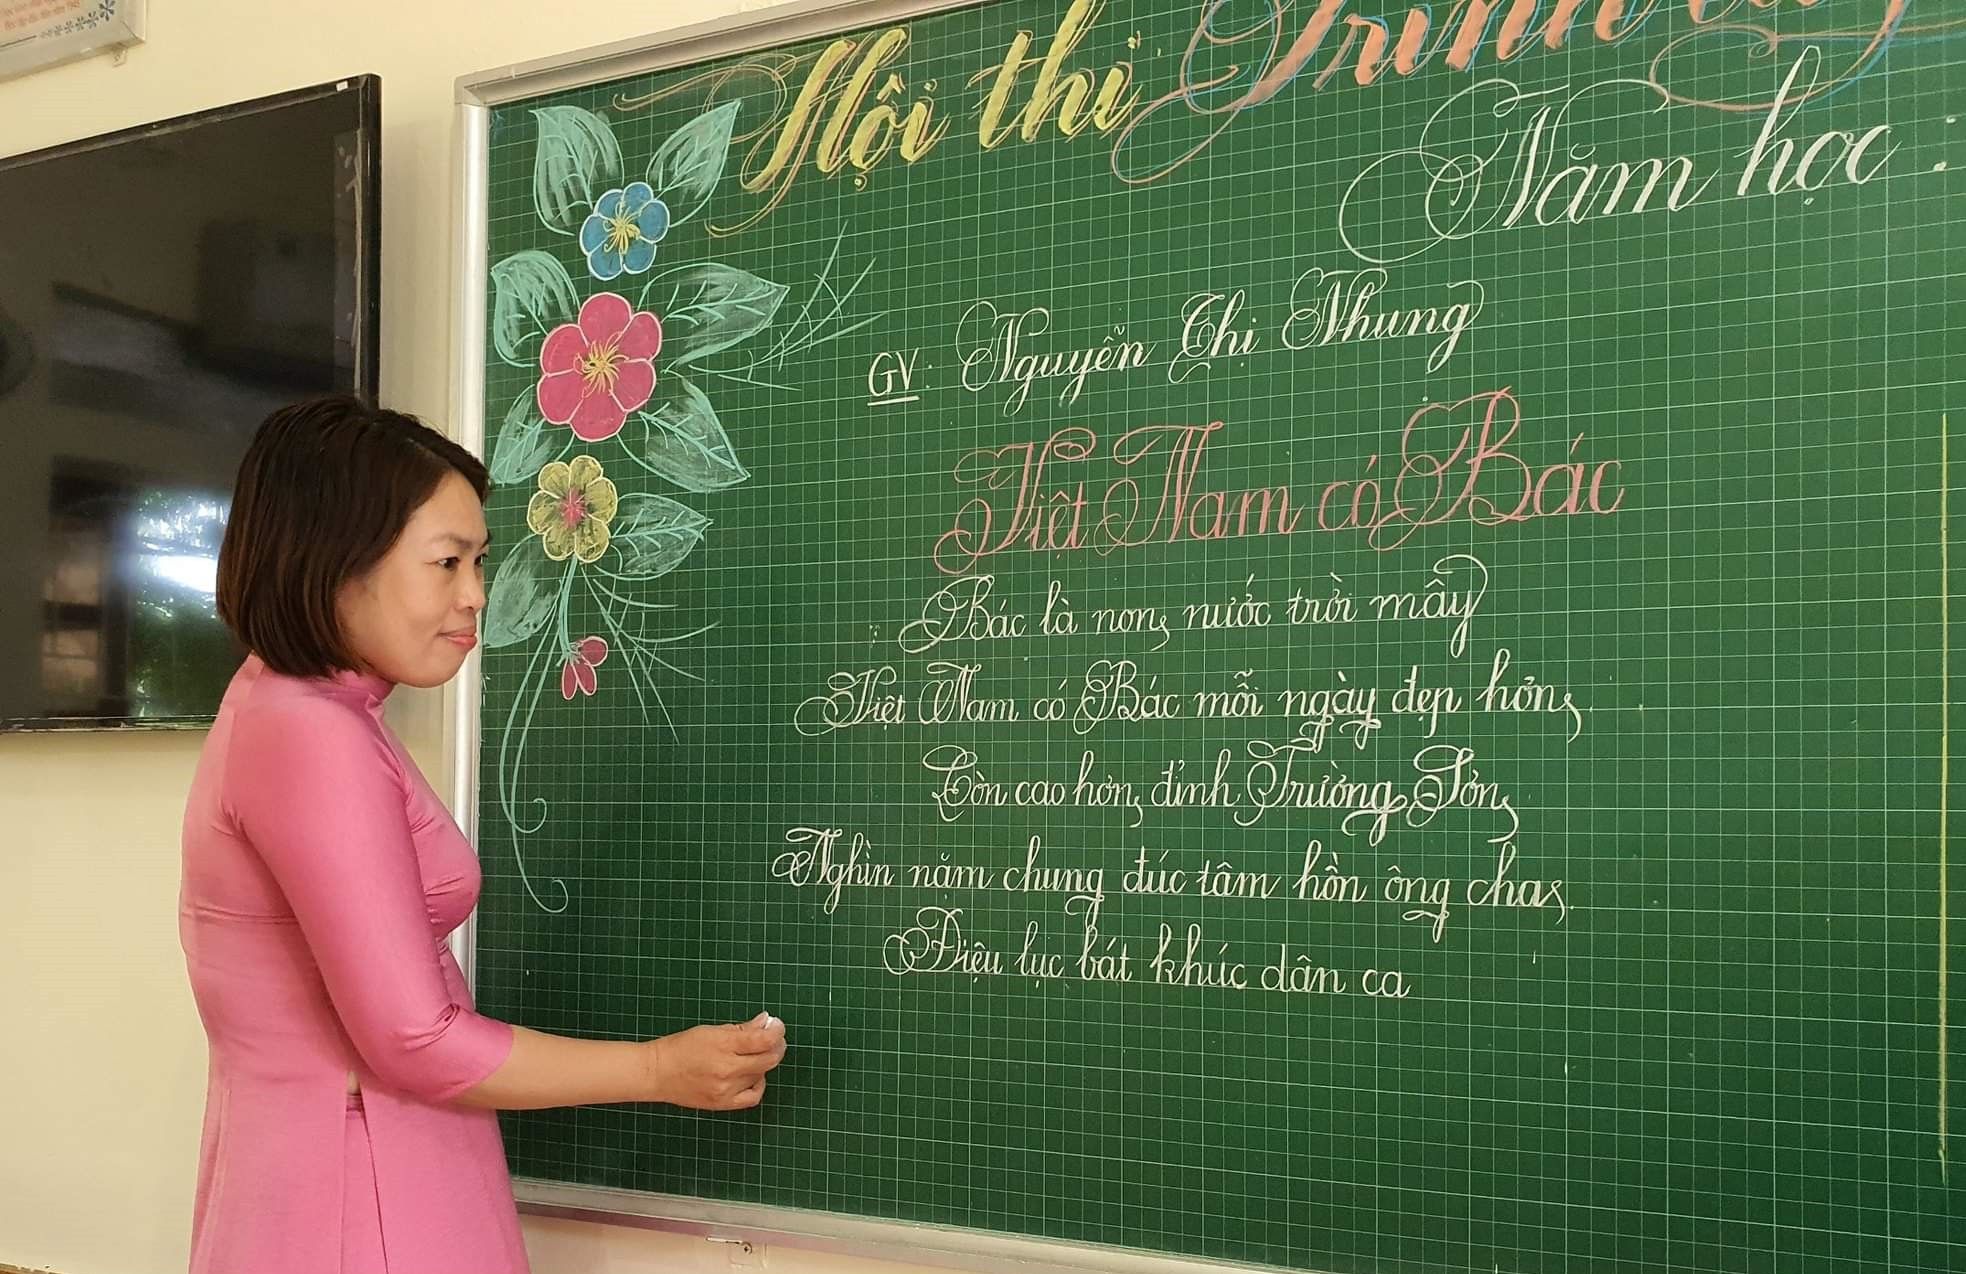 Hội thi Trình
Năm học :
GV: Nguyễn Thị Nhung
Việt Nam có Bác
Bác là non nước trời mây
Việt Nam có Bác mỗi ngày đẹp hơn
Còn cao hơn đỉnh Trường Sơn
Nghìn năm chung đúc tâm hồn ông cha
Điệu lục bát khúc dân ca